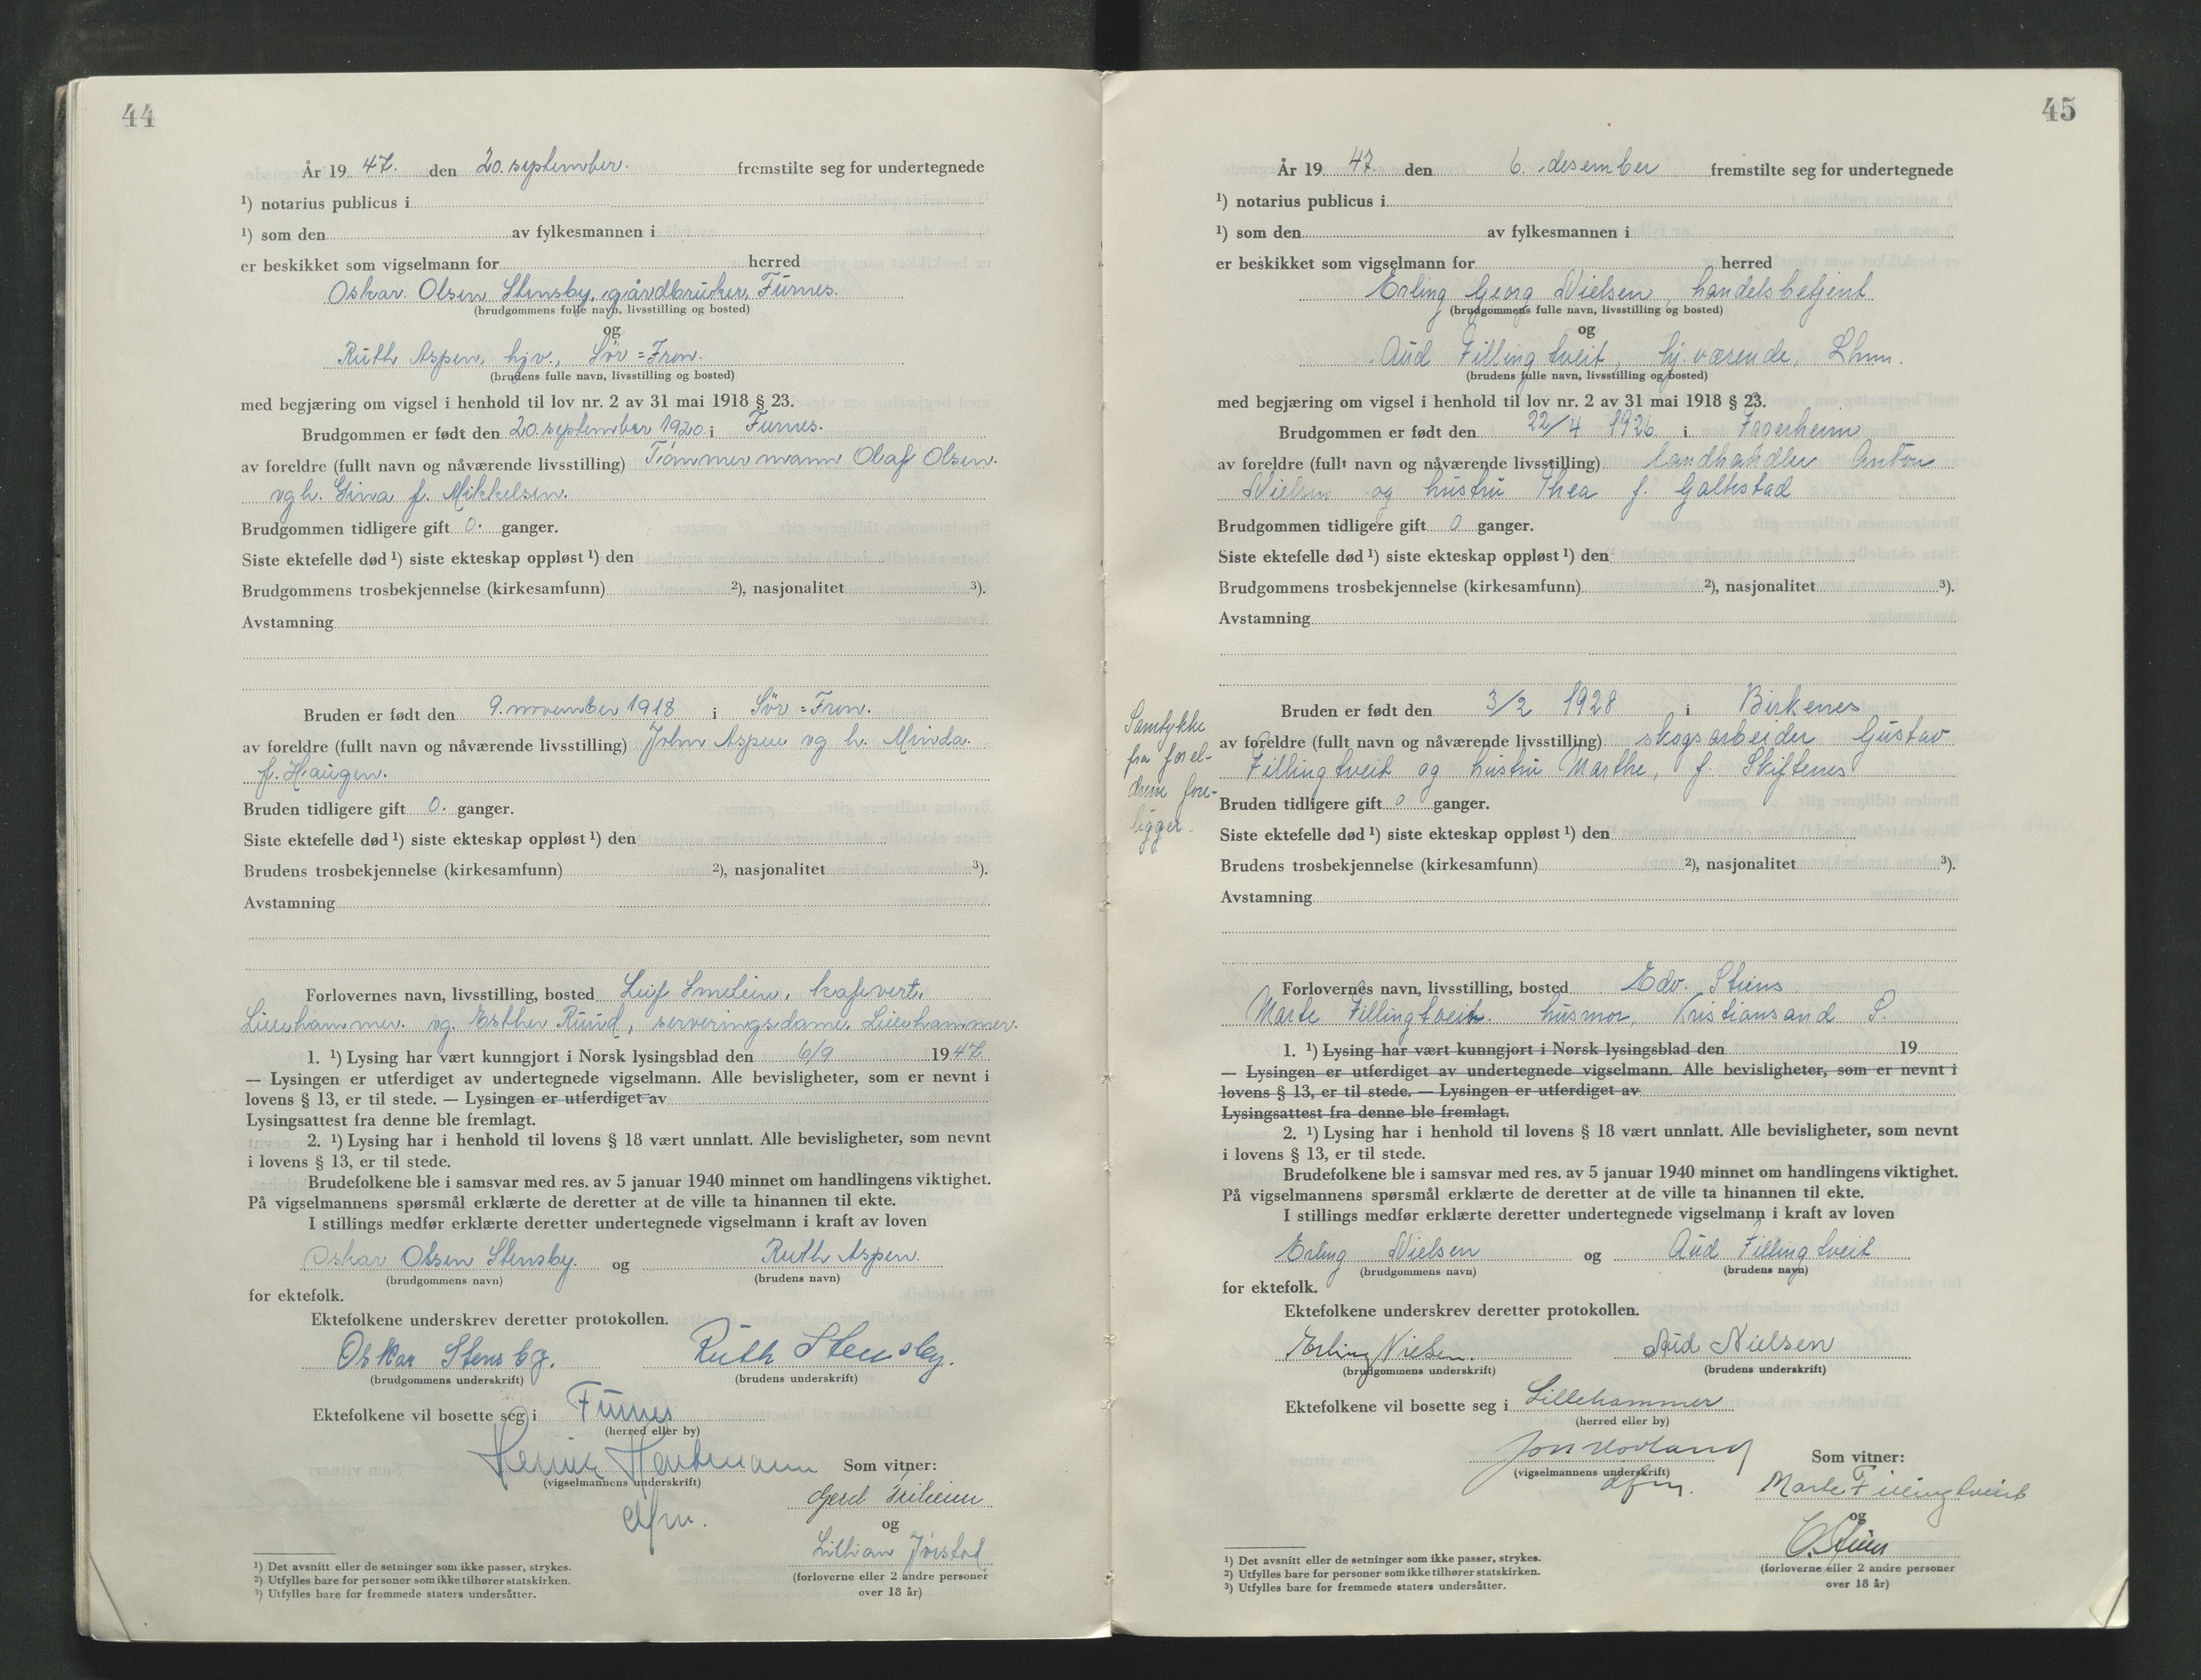 44
År 19 47. den 20. september. fremstilte seg for undertegnede
¹) notarius publicus i
¹) som den av fylkesmannen i
er beskikket som vigselmann for herred
Oskar Olsen Stensby, gårdbruker, Furnes.
(brudgommens fulle navn, livsstilling og bosted)
og
Ruth Aspen, hjv., Sör=Fron.
(brudens fulle navn, livsstilling og bosted)
med begjæring om vigsel i henhold til lov nr. 2 av 31 mai 1918 § 23.
Brudgommen er født den 20. september 1920. i Furnes.
av foreldre (fullt navn og nåværende livsstilling) Tömmermann Olaf Olsen.
og h. Gina f. Mikkelsen.
Brudgommen tidligere gift 0. ganger.
Siste ektefelle død ¹) siste ekteskap oppløst ¹) den
Brudgommens trosbekjennelse (kirkesamfunn) ²), nasjonalitet ³).
Avstamning
Bruden er født den 9. november 1918 i Sör=Fron.
av foreldre (fullt navn og nåværende livsstilling) John Aspen og h. Minda.
f. Haugen.
Bruden tidligere gift 0. ganger.
Siste ektefelle død ¹) siste ekteskap oppløst ¹) den
Brudens trosbekjennelse (kirkesamfunn) ²), nasjonalitet ³).
Avstamning
Forlovernes navn, livsstilling, bosted Leif kafevert,
Lillehammer. og Esther Ruud, serveringsdame, Lillehammer.
1. ¹) Lysing har vært kunngjort i Norsk lysingsblad den 6/9 19 47.
— Lysingen er utferdiget av undertegnede vigselmann. Alle bevisligheter, som er nevnt i
lovens § 13, er til stede. — Lysingen er utferdiget av
Lysingsattest fra denne ble fremlagt.
2. ¹) Lysing har i henhold til lovens § 18 vært unnlatt. Alle bevisligheter, som nevnt
i lovens § 13, er til stede.
Brudefolkene ble i samsvar med res. av 5 januar 1940 minnet om handlingens viktighet.
På vigselmannens spørsmål erklærte de deretter at de ville ta hinannen til ekte.
I stillings medfør erklærte deretter undertegnede vigselmann i kraft av loven
Oskar Olsen Stensby. og Ruth Aspen.
(brudgommens navn) (brudens navn)
for ektefolk.
Ektefolkene underskrev deretter protokollen.
Oskar Stensby. Ruth Stensby.
(brudgommens underskrift) (brudens underskrift)
Ektefolkene vil bosette seg i Furnes
(herred eller by)
Henrik Hartmann Som vitner:
(vigselmannens underskrift)
dfm. Gerd
og
Lillian Jörstad
(forloverne eller 2 andre personer
over 18 år)
¹) Det avsnitt eller de setninger som ikke passer, strykes.
²) Utfylles bare for personer som ikke tilhører statskirken.
³) Utfylles bare for fremmede staters undersåtter.
45
År 19 47. den 6. desember fremstilte seg for undertegnede
¹) notarius publicus i
¹) som den av fylkesmannen i
er beskikket som vigselmann for herred
Erling Georg Nielsen, handelsbetjent
(brudgommens fulle navn, livsstilling og bosted)
og
Aud Fillingtveit, hj.værende, Lhmr.
(brudens fulle navn, livsstilling og bosted)
med begjæring om vigsel i henhold til lov nr. 2 av 31 mai 1918 § 23.
Brudgommen er født den 22/4 1926 i Fagerheim
av foreldre (fullt navn og nåværende livsstilling) landhandler Anton
Nielsen og hustru Thea f. Galtestad
Brudgommen tidligere gift 0 ganger.
Siste ektefelle død ¹) siste ekteskap oppløst ¹) den
Brudgommens trosbekjennelse (kirkesamfunn) ²), nasjonalitet ³).
Avstamning
Samtykke
fra forel-
drene fore-
ligger.
Bruden er født den 3/2 1928 i Birkenes
av foreldre (fullt navn og nåværende livsstilling) skogsarbeider Gustav
Fillingtveit og hustru Marthe, f. Skiftenes
Bruden tidligere gift 0 ganger.
Siste ektefelle død ¹) siste ekteskap oppløst ¹) den
Brudens trosbekjennelse (kirkesamfunn) ²), nasjonalitet ³).
Avstamning
Forlovernes navn, livsstilling, bosted Edv. Stiens
Marte Fillingtveit. husmor, Kristiansand S.
1. ¹) Lysing har vært kunngjort i Norsk lysingsblad den 19
— Lysingen er utferdiget av undertegnede vigselmann. Alle bevisligheter, som er nevnt i
lovens § 13, er til stede. — Lysingen er utferdiget av
Lysingsattest fra denne ble fremlagt.
2. ¹) Lysing har i henhold til lovens § 18 vært unnlatt. Alle bevisligheter, som nevnt
i lovens § 13, er til stede.
Brudefolkene ble i samsvar med res. av 5 januar 1940 minnet om handlingens viktighet.
På vigselmannens spørsmål erklærte de deretter at de ville ta hinannen til ekte.
I stillings medfør erklærte deretter undertegnede vigselmann i kraft av loven
Erling Nielsen og Aud Fillingtveit
(brudgommens navn) (brudens navn)
for ektefolk.
Ektefolkene underskrev deretter protokollen.
Erling Nielsen. Aud Nielsen
(brudgommens underskrift) (brudens underskrift)
Ektefolkene vil bosette seg i Lillehammer
(herred eller by)
Jon Hovland Som vitner:
(vigselmannens underskrift)
dfm. Marte Fillingtveit
og
E. Stiens
(forloverne eller 2 andre personer
over 18 år)
¹) Det avsnitt eller de setninger som ikke passer, strykes.
²) Utfylles bare for personer som ikke tilhører statskirken.
³) Utfylles bare for fremmede staters undersåtter.